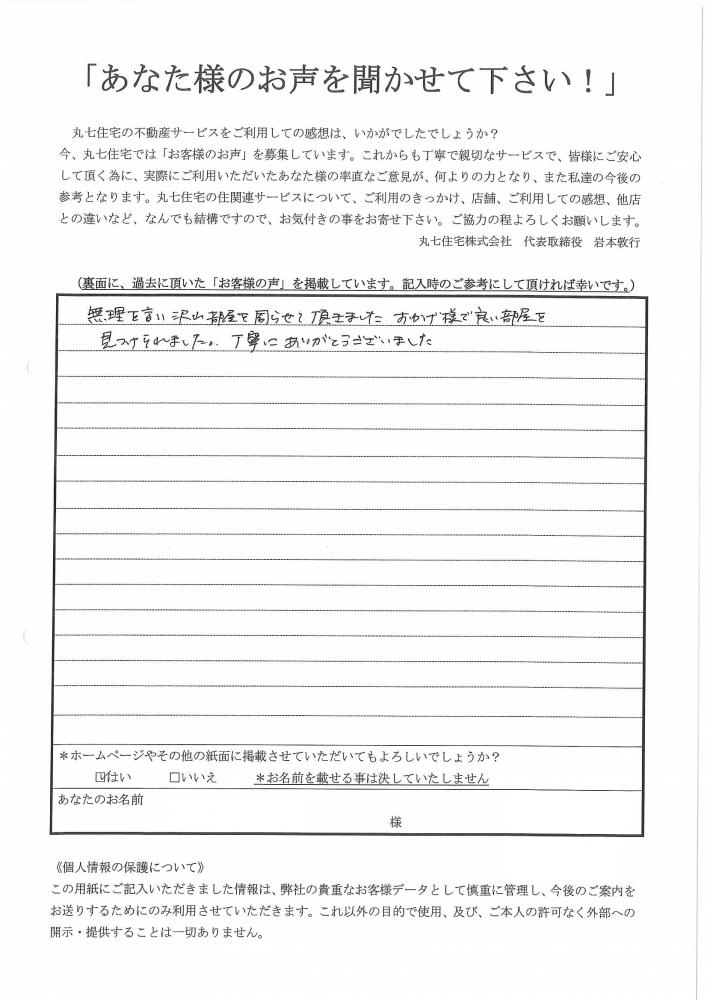 「あなた様のお声を聞かせて下さい！」
丸七住宅の不動産サービスをご利用しての感想は、いかがでしたでしょうか？
今、丸七住宅では「お客様のお声」を募集しています。これからも丁寧で親切なサービスで、皆様にご安心
して頂く為に、実際にご利用いただいたあなた様の率直なご意見が、何よりの力となり、また私達の今後の
参考となります。丸七住宅の住関連サービスについて、ご利用のきっかけ、店舗、ご利用しての感想、他店
との違いなど、なんでも結構ですので、お気付きの事をお寄せ下さい。ご協力の程よろしくお願いします。
丸七住宅株式会社　代表取締役　岩本敦行
（裏面に、過去に頂いた「お客様の声」を掲載しています。記入時のご参考にして頂ければ幸いです。）
無理を言い沢山部屋を周らせて頂きました おかげ様で良い部屋を
見つけられました。丁寧にありがとうございました
＊ホームページやその他の紙面に掲載させていただいてもよろしいでしょうか？
☑はい　□いいえ　＊お名前を載せる事は決していたしません
あなたのお名前
様
《個人情報の保護について》
この用紙にご記入いただきました情報は、弊社の貴重なお客様データとして慎重に管理し、今後のご案内を
お送りするためにのみ利用させていただきます。これ以外の目的で使用、及び、ご本人の許可なく外部への
開示・提供することは一切ありません。